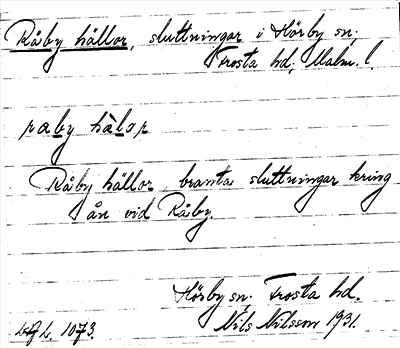 Råby hällor, sluttningar i Hörby sn,
Frosta hd, Malm. l.
raby hàlor
Råby hällor, branta sluttningar kring
ån vid Råby.
Hörby sn. Frosta hd.
1073. Nils Nilsson 1931.